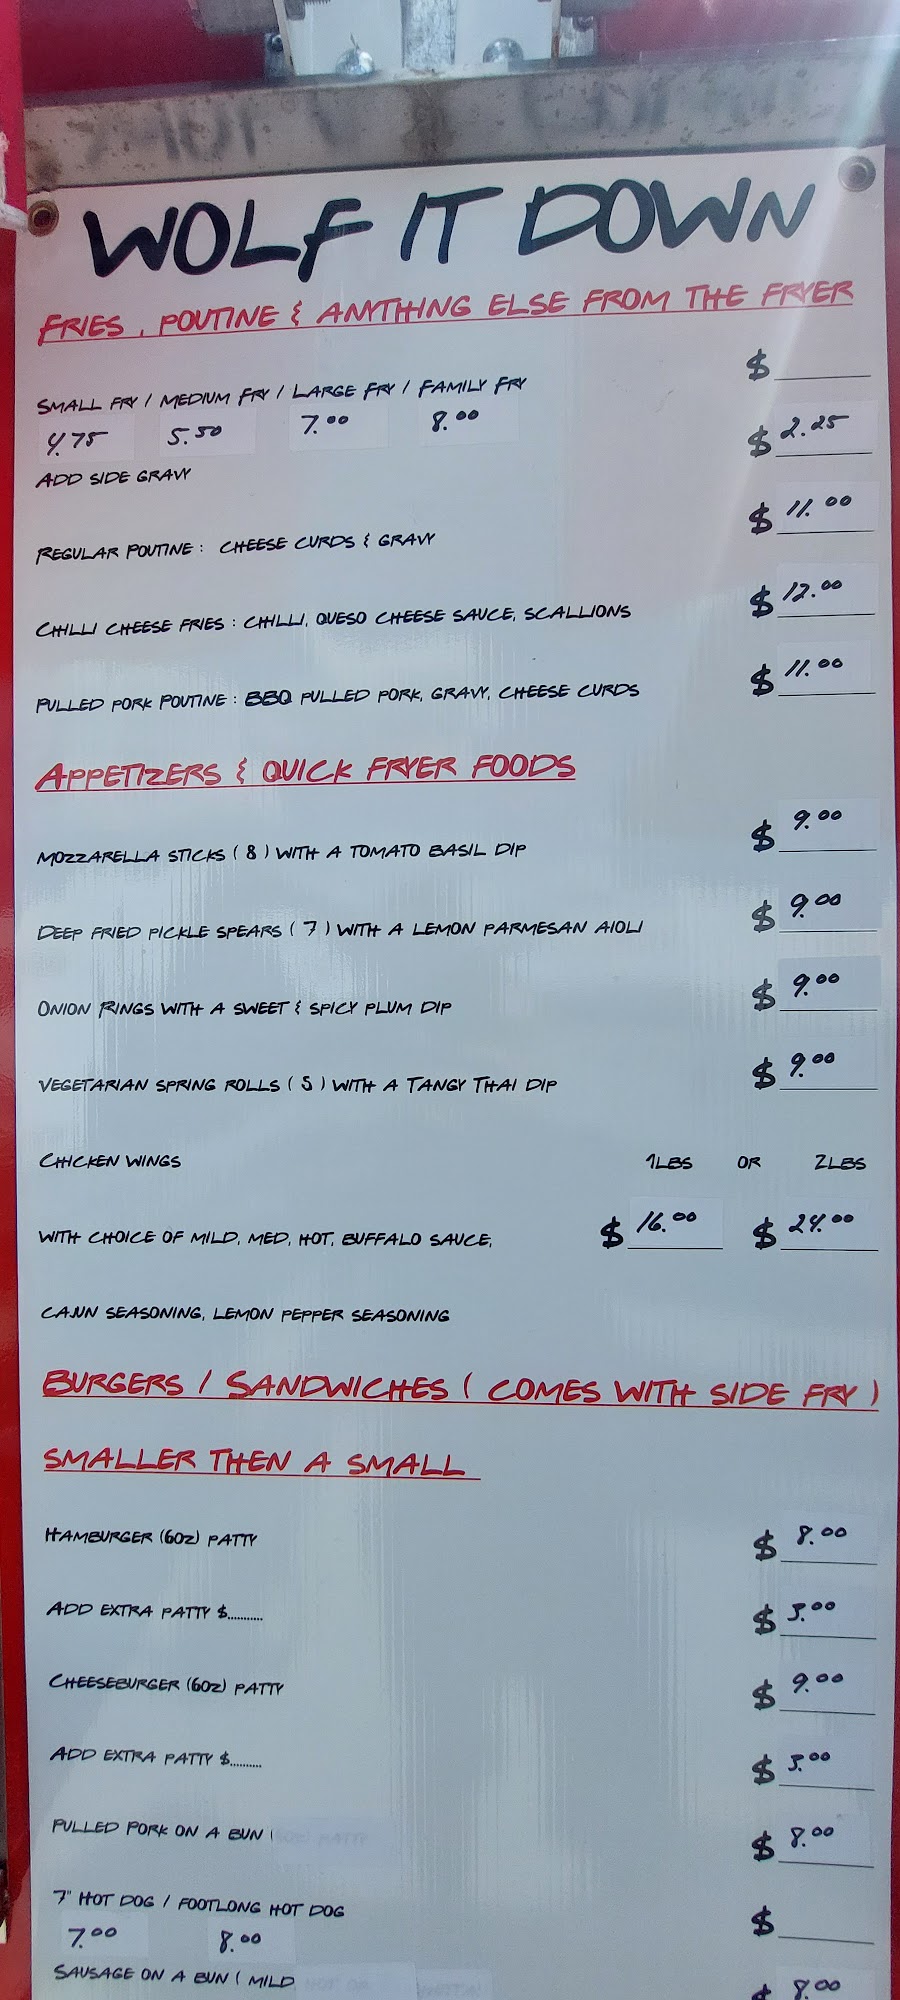 WOLF IT DOWN
FRIES, POUTINE & ANYTHING ELSE FROM THE FRYER
SMALL FRY / MEDIUM FRY / LARGE FRY / FAMILY FRY $
4.75 5.50 7.00 8.00
ADD SIDE GRAVY $ 2.25
REGULAR POUTINE : CHEESE CURDS & GRAVY $ 11.00
CHILLI CHEESE FRIES : CHILLI, QUESO CHEESE SAUCE, SCALLIONS $ 12.00
PULLED PORK POUTINE : BBQ PULLED PORK, GRAVY, CHEESE CURDS $ 11.00
APPETIZERS & QUICK FRYER FOODS
MOZZARELLA STICKS ( 8 ) WITH A TOMATO BASIL DIP $ 9.00
DEEP FRIED PICKLE SPEARS ( 7 ) WITH A LEMON PARMESAN AIOLI $ 9.00
ONION RINGS WITH A SWEET & SPICY PLUM DIP $ 9.00
VEGETARIAN SPRING ROLLS ( 5 ) WITH A TANGY THAI DIP $ 9.00
CHICKEN WINGS 1LBS OR 2LBS
WITH CHOICE OF MILD, MED, HOT, BUFFALO SAUCE, $ 16.00 $ 24.00
CAJUN SEASONING, LEMON PEPPER SEASONING
BURGERS / SANDWICHES ( COMES WITH SIDE FRY )
SMALLER THEN A SMALL
HAMBURGER (6OZ) PATTY $ 8.00
ADD EXTRA PATTY $........... $ 3.00
CHEESEBURGER (6OZ) PATTY $ 9.00
ADD EXTRA PATTY $.......... $ 3.00
PULLED PORK ON A BUN ( $ 8.00
7" HOT DOG / FOOTLONG HOT DOG $
7.00 8.00
SAUSAGE ON A BUN ( MILD $ 8.00